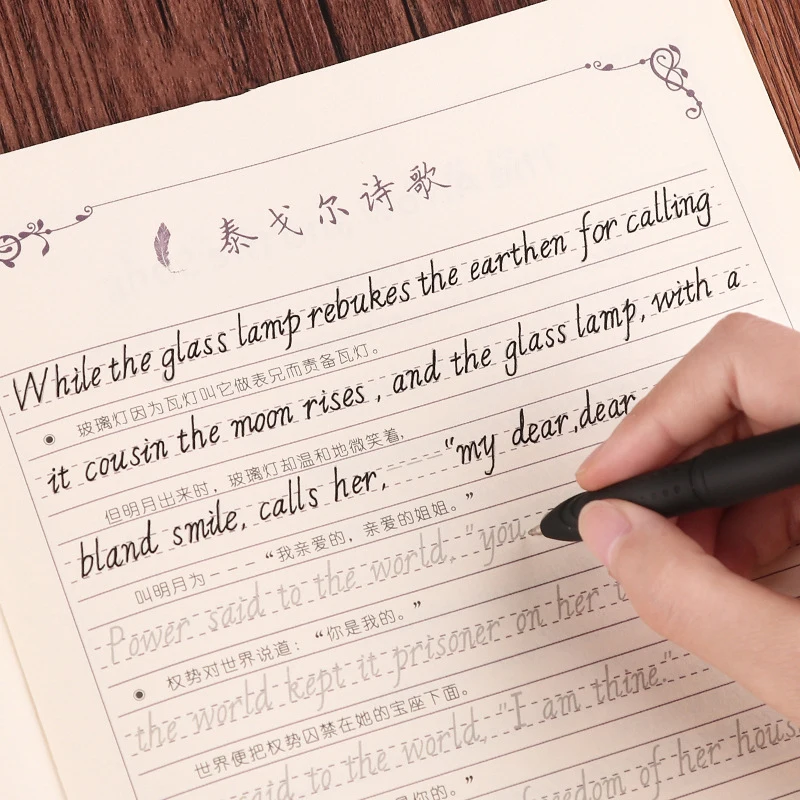 泰戈尔诗歌
While the glass lamp rebukes the earthen for calling
玻璃灯因为瓦灯叫它做表兄而责备瓦灯。
it cousin the moon rises, and the glass lamp, with a
但明月出来时，玻璃灯却温和地微笑着，
bland smile, calls her, ---- "my dear, dear
叫明月为---“我亲爱的，亲爱的姐姐。”
Power said to the world, "you
权势对世界说道：“你是我的。”
the world kept it prisoner on her
世界便把权势囚禁在她的宝座下面。
said to the world, "I am thine."
是你的。”
freedom of her hous